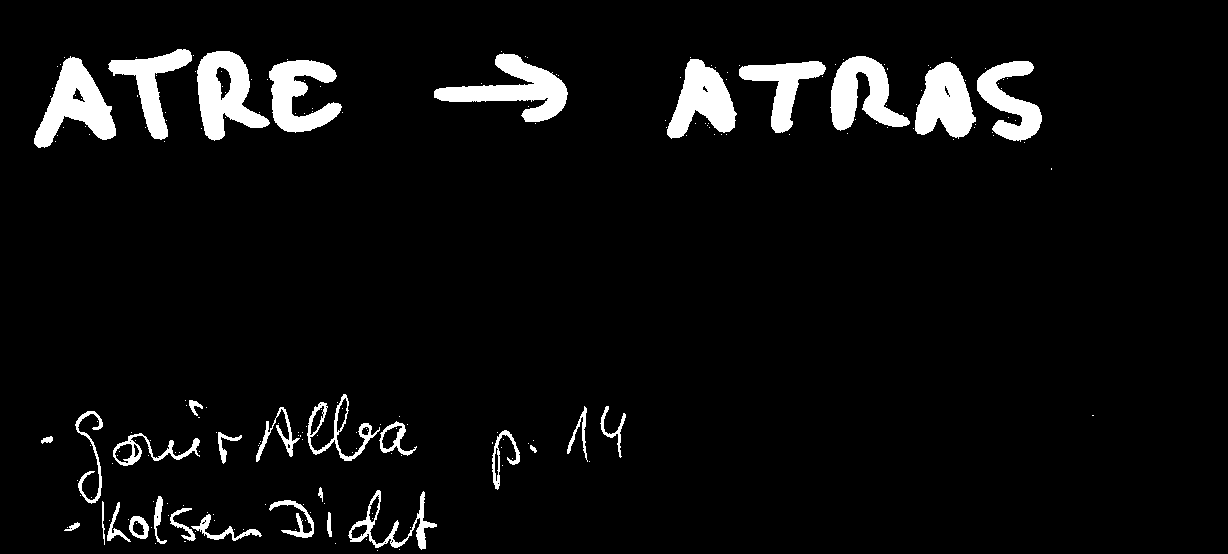 ATRE → ATRAS
- GouirAlba p. 14
- KolsenDicht